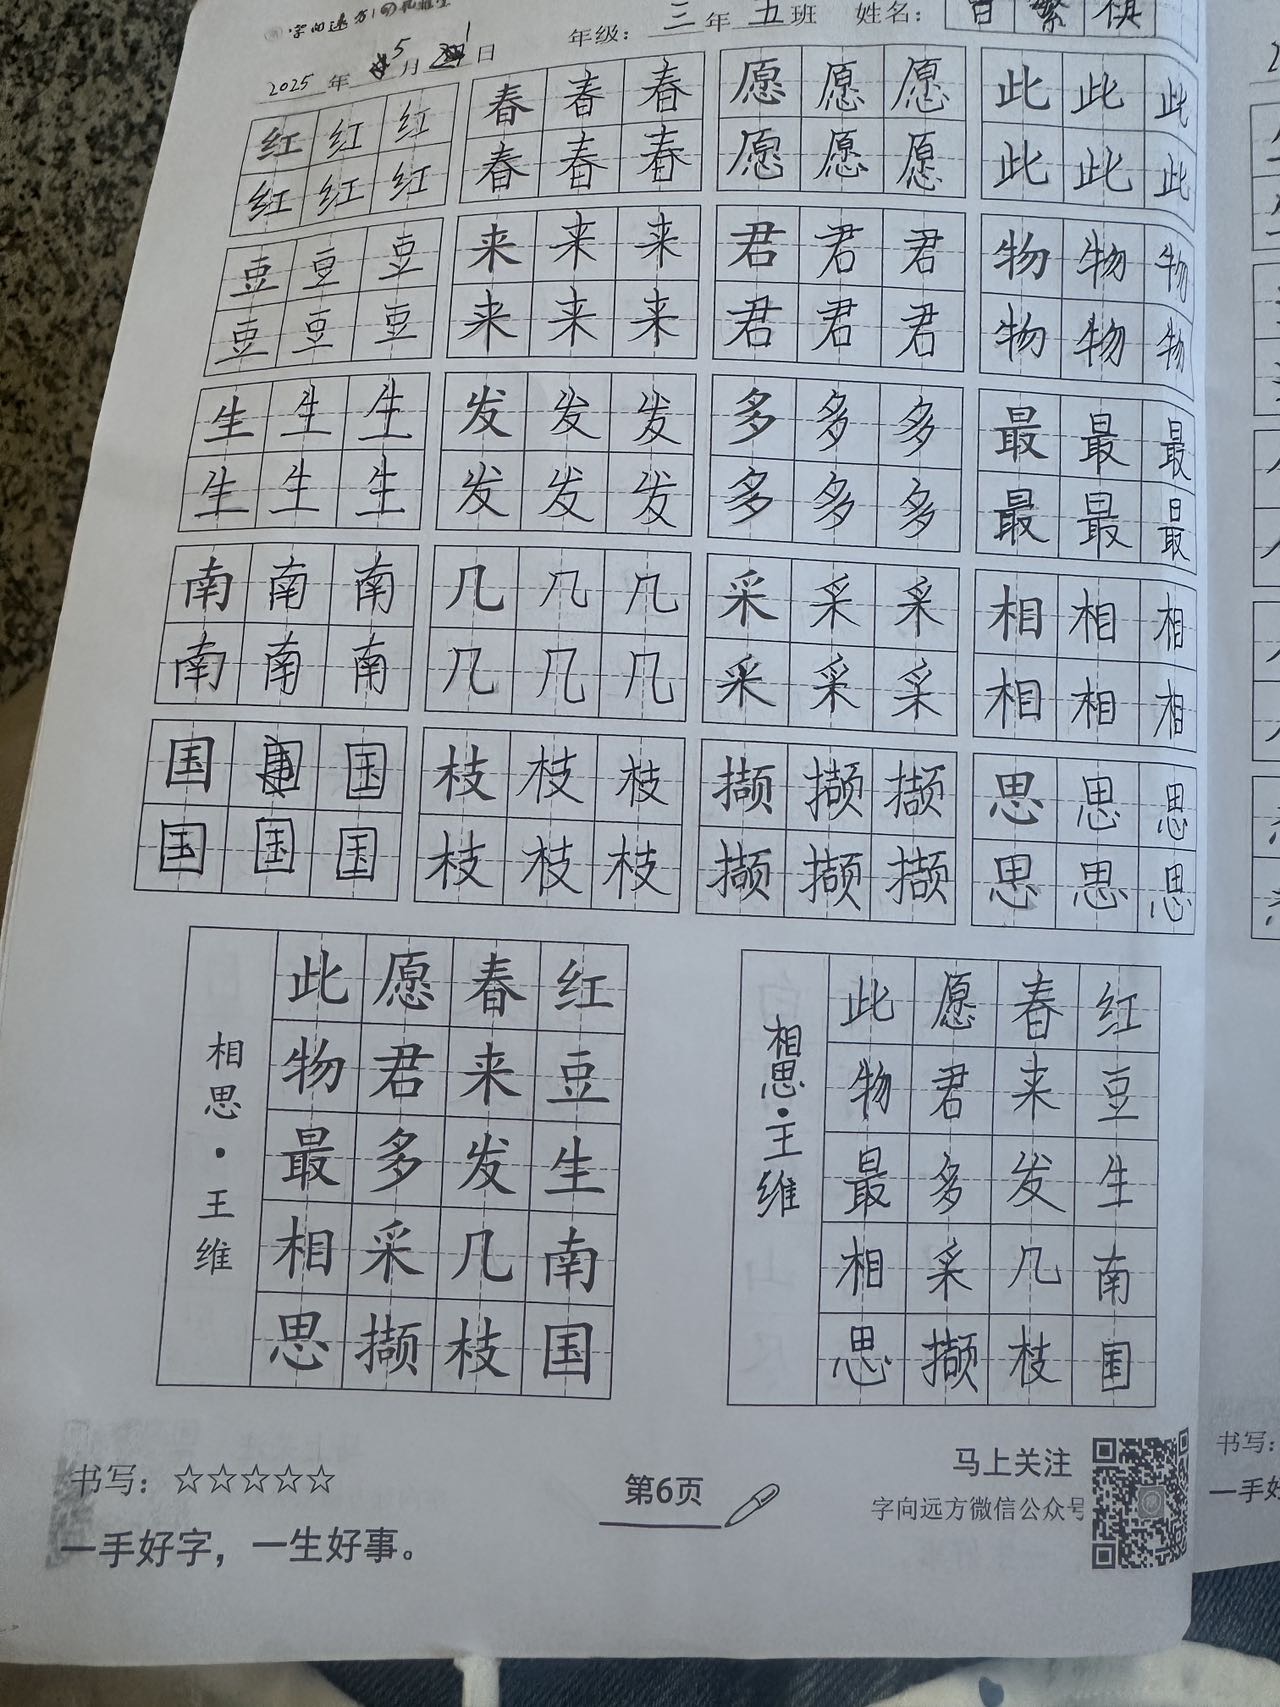 2025 年 5 月 日 年级：三 年 五 班 姓名：
红 红 红 春 春 春 愿 愿 愿 此 此 此
红 红 红 春 春 春 愿 愿 愿 此 此 此
豆 豆 豆 来 来 来 君 君 君 物 物 物
豆 豆 豆 来 来 来 君 君 君 物 物 物
生 生 生 发 发 发 多 多 多 最 最 最
生 生 生 发 发 发 多 多 多 最 最 最
南 南 南 几 几 几 采 采 采 相 相 相
南 南 南 几 几 几 采 采 采 相 相 相
国 国 枝 枝 枝 撷 撷 撷 思 思 思
国 国 国 枝 枝 枝 撷 撷 撷 思 思 思
红豆生南国
春来发几枝
愿君多采撷
此物最相思
相思·王维
红豆生南国
春来发几枝
愿君多采撷
此物最相思
相思·王维
书写：☆☆☆☆☆
一手好字，一生好事。
第6页
马上关注
字向远方微信公众号
书写：
一手好